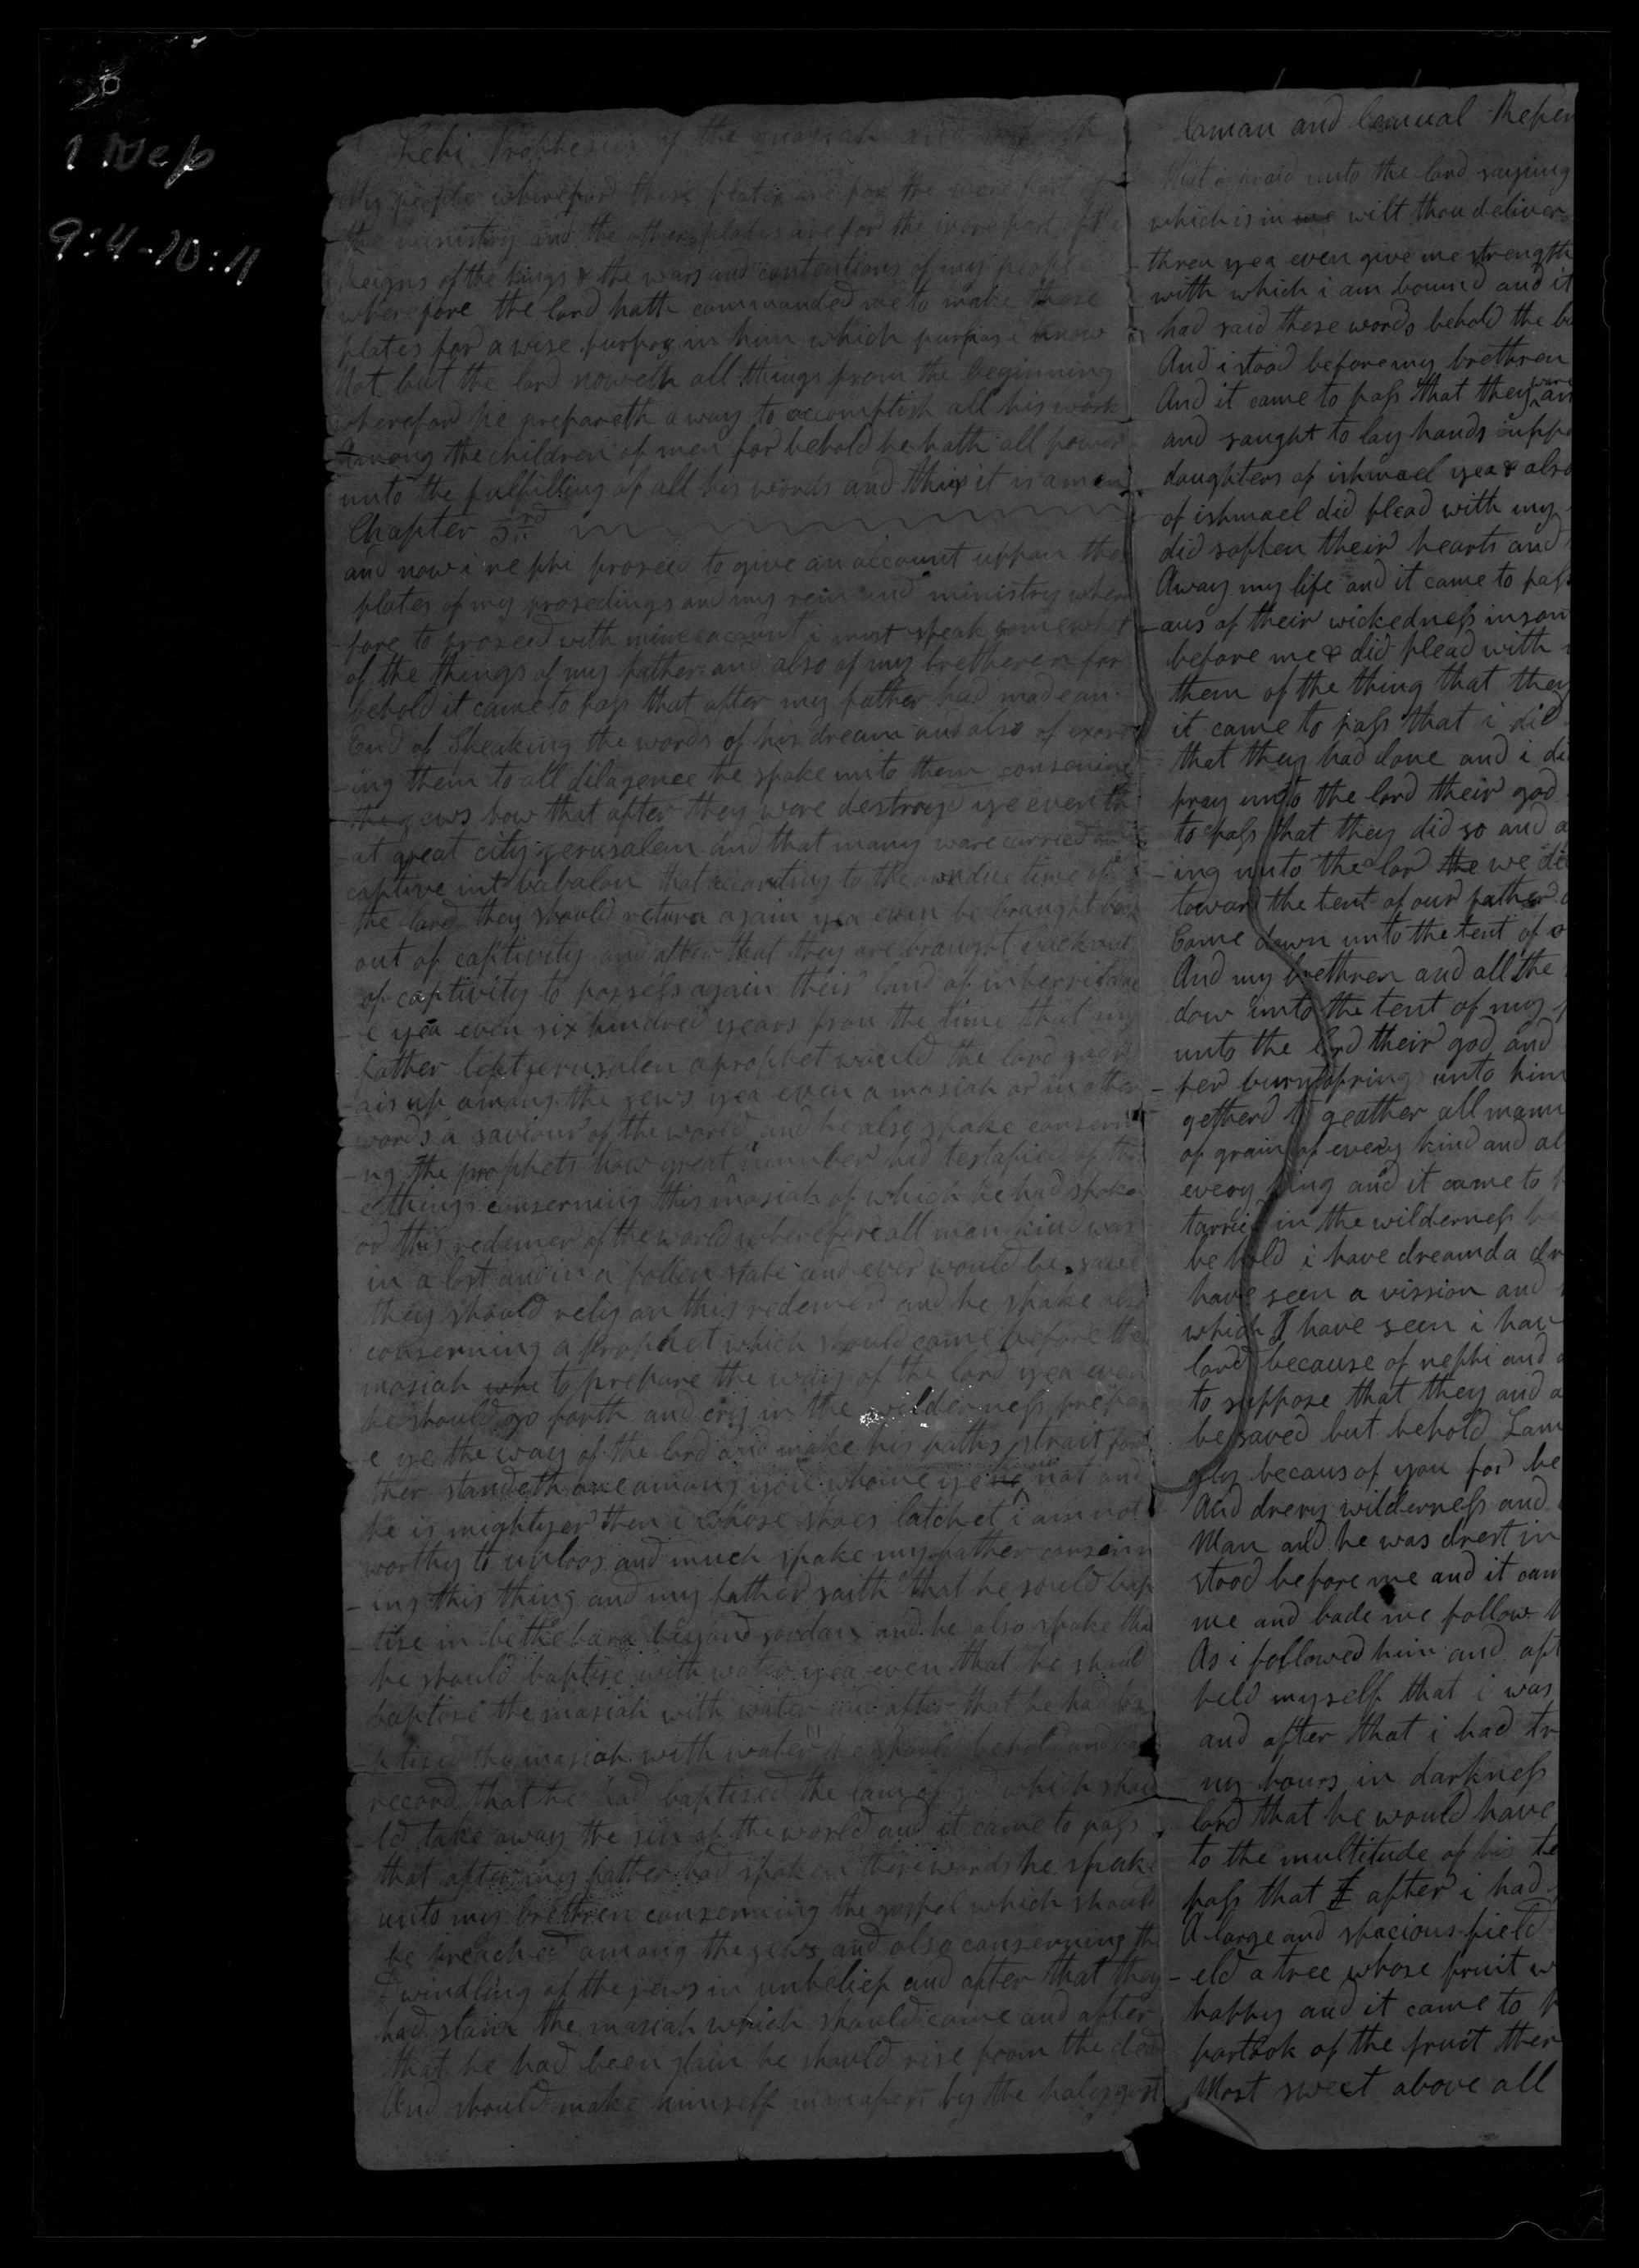 1 Nep
9:4-10:11
Lehi Prophesies of the masiah
My people wherefore these plates are for the more part of
the ministry and the other plates are for the more part of the
Reigns of the kings & the wars and contentions of my people
wherefore the lord hath commanded me to make these
plates for a wise purpos in him which purpos i know
Not but the lord noweth all things from the beginning
wherefor he prepareth a way to accomplish all his work
Among the children of men for behold he hath all power
unto the fulfilling of all his words and thus it is amen
Chapter 3rd
and now i nephi proseed to give an account uppon the
plates of my prosedings and my rein and ministry where
fore to proseed with mine account i must speak somewhat
of the things of my father and also of my bretheren for
behold it came to pass that after my father had made an
End of Speaking the words of his dream and also of exort
-ing them to all diligence he spake unto them conserning
the jews how that after they were destroyd ye even th
-at great city jerusalem and that many ware carried away
captive into babalon that according to the own due time of
the lord they should return again yea even be braught back
out of captivity and after that they are braught back out
of captivity to possess again their land of inherritanc
-e yea even six hundred years from the time that my
father left jerusalem a prophet would the lord god r
-ais up among the jews yea even a masiah or in other
words a saviour of the world and he also spake conserni
-ng the prophets how great number had testafied of the
-e things conserning this masiah of which he had spoken
or this redemer of the world wherefore all man kind was
in a lost and in a fallen state and ever would be save
they should rely on this redemer and he spake also
conserning a prophet which should come before the
masiah who to prepare the way of the lord yea even
he should go forth and cry in the wilderness prepar
-e ye the way of the lord and make his paths strait for
ther standeth one among you whome ye no not and
he is mightyer then i whose shoes latchet i am not
worthy to unloos and much spake my father consern
-ing this thing and my father saith that he sould bap
-tise in bethebara beyond jordan and he also spake that
he should baptise with water yea even that he should
baptise the masiah with water and after that he had ba
-ptised the masiah with water he should behold and bare
record that he had baptised the lam of god which shou
-ld take away the sin of the world and it came to pass
that after my father had spoken these words he spake
unto my brethren conserning the gospel which should
be preached among the jews and also conserning the
Dwindling of the jews in unbelief and after that they
had slain the masiah which should come and after
that he had been slain he should rise from the dead
And should make himself manafest by the holy gost
Laman and Lemual Repen
that i praid unto the lord saying
which is in me wilt thou deliver
thren yea even give me strength
with which i am bound and it
had said these words behold the ba
And i stood before my brethren
And it came to pass that they ware an
and saught to lay hands uppo
daughters of ishmael yea & also
of ishmael did plead with my
did soften their hearts and
Away my life and it came to pass
-aus of their wickedness inson
before me & did plead with
them of the thing that they
it came to pass that i did
that they had done and i di
pray unto the lord their god
to pass that they did so and a
-ing unto the lor the we di
toward the tent of our father
Came down unto the tent of o
And my brethren and all the
dow unto the tent of my
unto the lord their god and
-fer burntofrings unto him
getherd to geather all mann
of grain of every kind and al
every king and it came to
tarried in the wilderness
behold i have dreamd a dr
have seen a vission and
which I have seen i hav
lord because of nephi and
to suppose that they and a
be saved but behold Lam
gly becaus of you for be
And drery wilderness and
Man and he was drest in
stood before me and it cam
me and bade me follow
As i followed him and aft
held myself that i was
and after that i had tr
ny hours in darkness
lord that he would have
to the multitude of his te
pass that I after i had
A large and spacious field
-eld a tree whose fruit w
happy and it came to
partook of the fruit ther
Most sweet above all